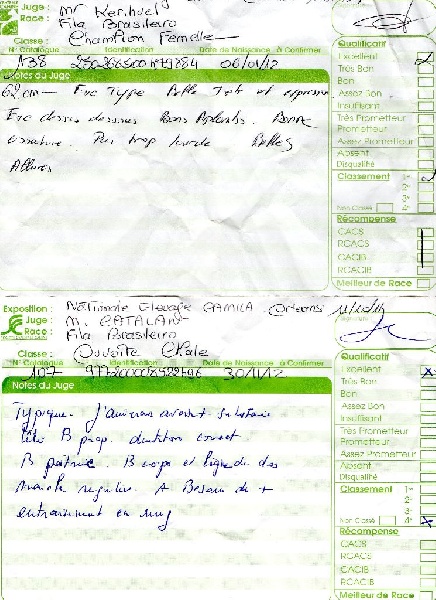 Juge : Mr Kerihuel
Race : Fila Brasileiro
Classe : Champion Femelle
N° Catalogue Identification Date de Naissance à Confirmer
138 06/01/12
Notes du Juge
62 cm - Exc Type Belle Tete et expression
Exc dessus dessous Bons Aplombs. Bonne
ossature. Pas trop lourde Belles
Allures
Qualificatif
Excellent
Très Bon
Bon
Assez Bon
Insuffisant
Très Prometteur
Prometteur
Assez Prometteur
Absent
Disqualifié
Classement 1er
2e
3e
Non Classé 4e
Récompense
CACS
RCACS
CACIB
RCACIB
Meilleur de Race
Exposition : Nationale Elevage CAMILA Orleans
Juge : M. CATALAN
Race : Fila Brasileiro
Classe : Ouverte Male
N° Catalogue Identification Date de Naissance à Confirmer
107 30/11/12
Notes du Juge
Typique. J'aimerai avec
tête B prop. dentition correct.
B poitrine. B corps et ligne de dos
marche régulière. A Besoin de +
entrainement en ring
Signature
Qualificatif
Excellent X
Très Bon
Bon
Assez Bon
Insuffisant
Très Prometteur
Prometteur
Assez Prometteur
Absent
Disqualifié
Classement 1er
2e
3e
Non Classé 4e X
Récompense
CACS
RCACS
CACIB
RCACIB
Meilleur de Race